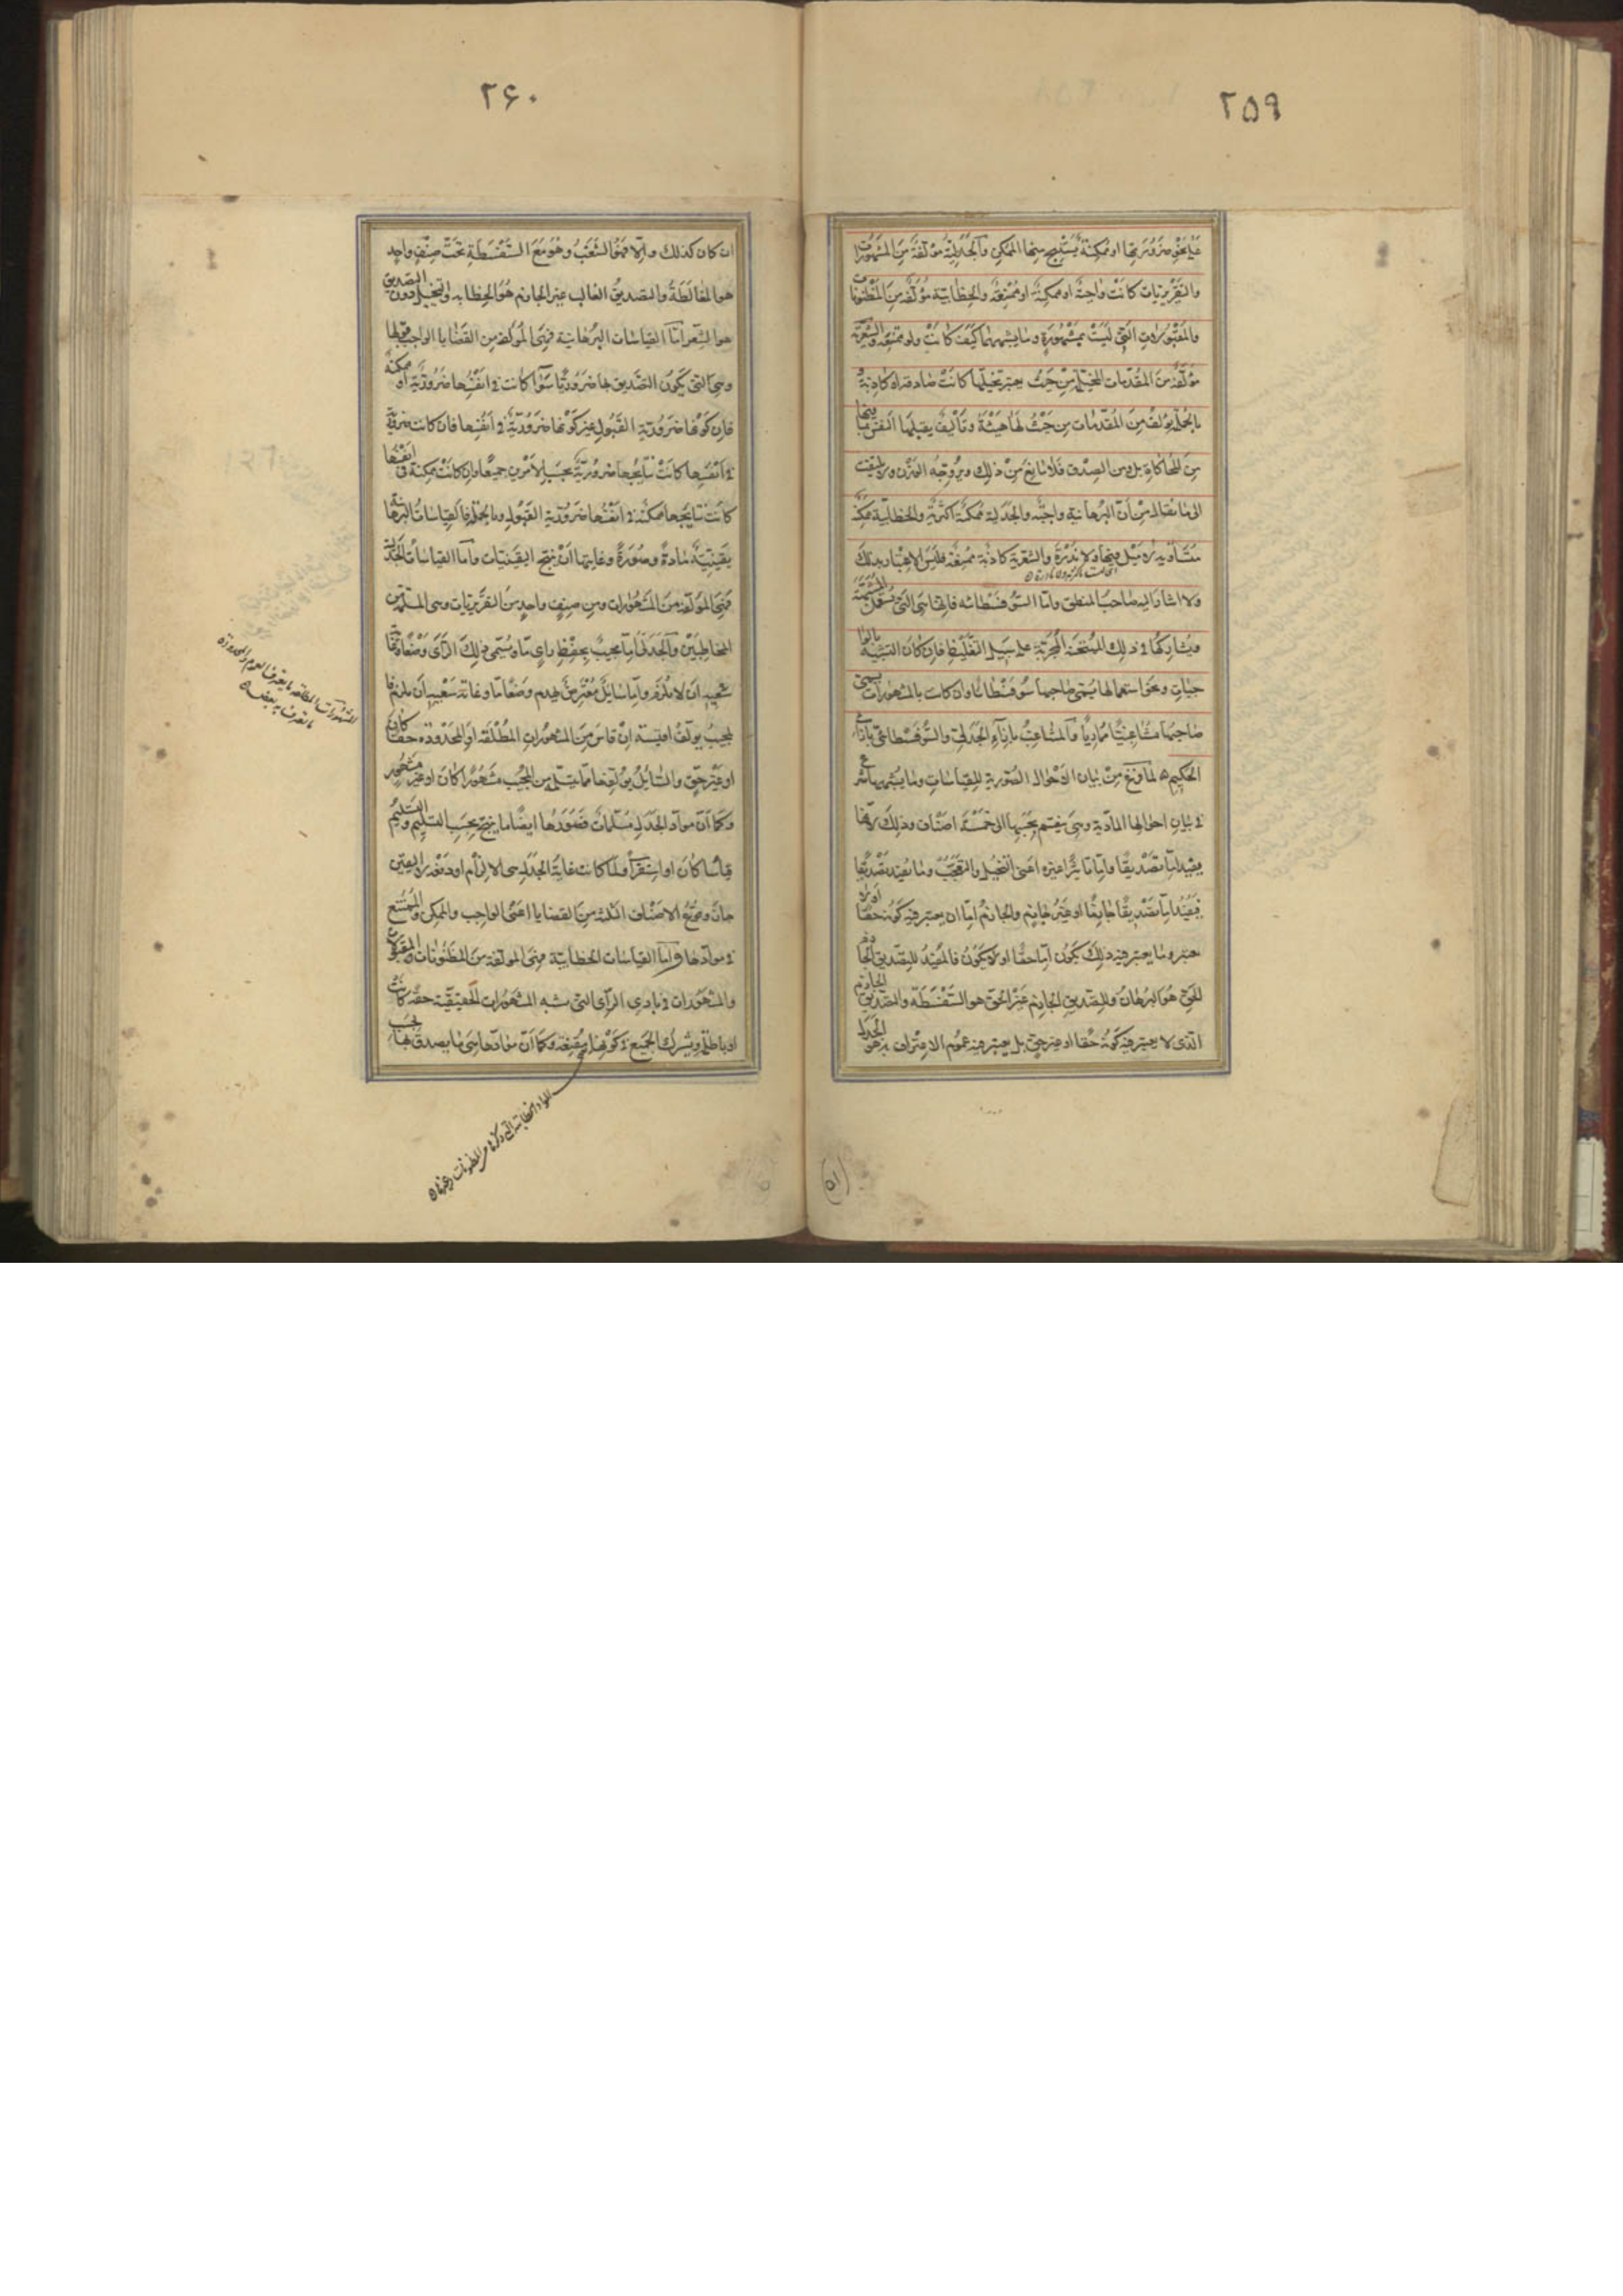 ٢٥٩
على نحو ضرورتها او ممكنة يستنتج منها الممكن والجدلية مؤلفة من المشهورات
والتقريريات كانت واجبة او ممكنة او ممتنعة والخطابية مؤلفة من المظنونات
والمقبولات التى ليست بمشهورة وما يشبهها كيف كانت ولو ممتنعة والشعرية
مؤلفة من المقدمات المخيلة من حيث يعتبر تخيلها كانت صادقة او كاذبة
بالجملة يؤلف من المقدمات من حيث لها هيئة وتأليف يقبلها النفس بما فيها
من المحاكاة بل ومن الصدق فلا مانع من ذلك ويروجه الوزن ولا يلتفت
الى ما يقال من ان البرهانية واجبة والجدلية ممكنة اكثرية والخطابية ممكنة
متساوية لا ميل فيها ولا ندرة والشعرية كاذبة ممتنعة فليس الاعتبار بذلك
ولا اشار اليه صاحب المنطق واما السوفسطائية فانها هى التى تستعمل المشبهة
ويشاركها فى ذلك الممتحنة المجربة على سبيل التغليط فان كان التشبيه بالوا
جبات ونحو استعمالها يسمى صاحبها سوفسطائيا وان كانت بالمشهورات يسمى
صاحبها مشاغبيا مماريا والمشاغب بازاء الجدلى والسوفسطائى بازاء
الحكيم ٥ لما فرغ من بيان الاحوال الصورية للقياسات وما يشبهها شرع
فى بيان احوالها المادية وهى ينقسم بحسبها الى خمسة اصناف وذلك لانها
يفيد اما تصديقا واما تاثيرا غيره اعنى التخيل والتعجب وما يفيد تصديقا
فيفيد اما تصديقا جازما او غير جازم والجازم اما ان يعتبر فيه كونه حقا او لا
يعتبر وما يعتبر فيه ذلك يكون اما حقا او لا يكون فالمفيد للتصديق الجازم
الحق هو البرهان وللتصديق الجازم غير الحق هو السفسطة والتصديق الجازم
الذى لا يعتبر فيه كونه حقا او غير حق بل يعتبر فيه عموم الاعتراف به هو الجدل
٢٦٠
ان كان كذلك والا فهو الشغب وهو مع السفسطة تحت صنف واحد
هو المغالطة والتصديق الغالب غير الجازم هو الخطابة والتخييل دون التصديق
هو الشعر اما القياسات البرهانية فهى المؤلفة من القضايا الواجب قبولها
وهى التى يكون التصديق بها ضروريا سواء كانت فى انفسها ضرورية او ممكنة
فان كونها ضرورية القبول غير كونها ضرورية فى انفسها فان كانت ضرورية
فى انفسها كانت نتايجها ضرورية بحسب الامرين جميعا وان كانت ممكنة فى انفسها
كانت نتايجها ممكنة فى انفسها ضرورية القبول وبالجملة فالقياسات البرهانية
يقينية مادة وصورة وغايتها ان ينتج اليقينيات واما القياسات الجدلية
فهى المؤلفة من المشهورات ومن صنف واحد من التقريريات وهى المسلمة من
المخاطبين والجدلى اما مجيب يحفظ راى ما ويسمى ذلك الراى وضعا وغاية
سعيه ان لا يلزم واما سايل معترض يهدم وضعا ما وغاية سعيه ان يلزم فا
لمجيب يؤلف اقيسة ان قاس من المشهورات المطلقة او المحدودة حقا كان
او غير حق والسايل يؤلفها مما يتسلمه من المجيب مشهورا كان او غير مشهور
وكما ان مواد الجدل مسلمات فصورها ايضا ما ينتج بحسب التسليم والتسليم
قياسا كان او استقراء ولما كانت غاية الجدل هى الالزام او دفعه لا اليقين
جاز وقوع الاصناف الثلثة من القضايا اعنى الواجب والممكن والممتنع
فى موادها واما القياسات الخطابية فهى المؤلفة من المظنونات والمقبولات
والمشهورات فى بادى الراى التى يشبه المشهورات الحقيقية حقة كانت
او باطلة ويشترك الجميع فى كونها مقنعة وكما ان موادها هى ما يصدق بها بحسب
المشهورات المطلقة ما يعترف بها العموم والمحدودة
ما يعترف به بعض ٥
المواد الخطابية التى ذكرها من المظنونات وغيرها ٥